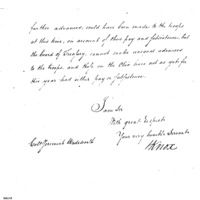 further advances, could have been made to the troops
at this time, on account of their pay and subsistence, but
the board of Treasury, cannot make several advances
to the troops and those on the Ohio have not as yet for
this year had either pay or subsistence.
I am Sir
With great respect
Your very humble Servant
HKnox
Colo Jeremiah Wadsworth